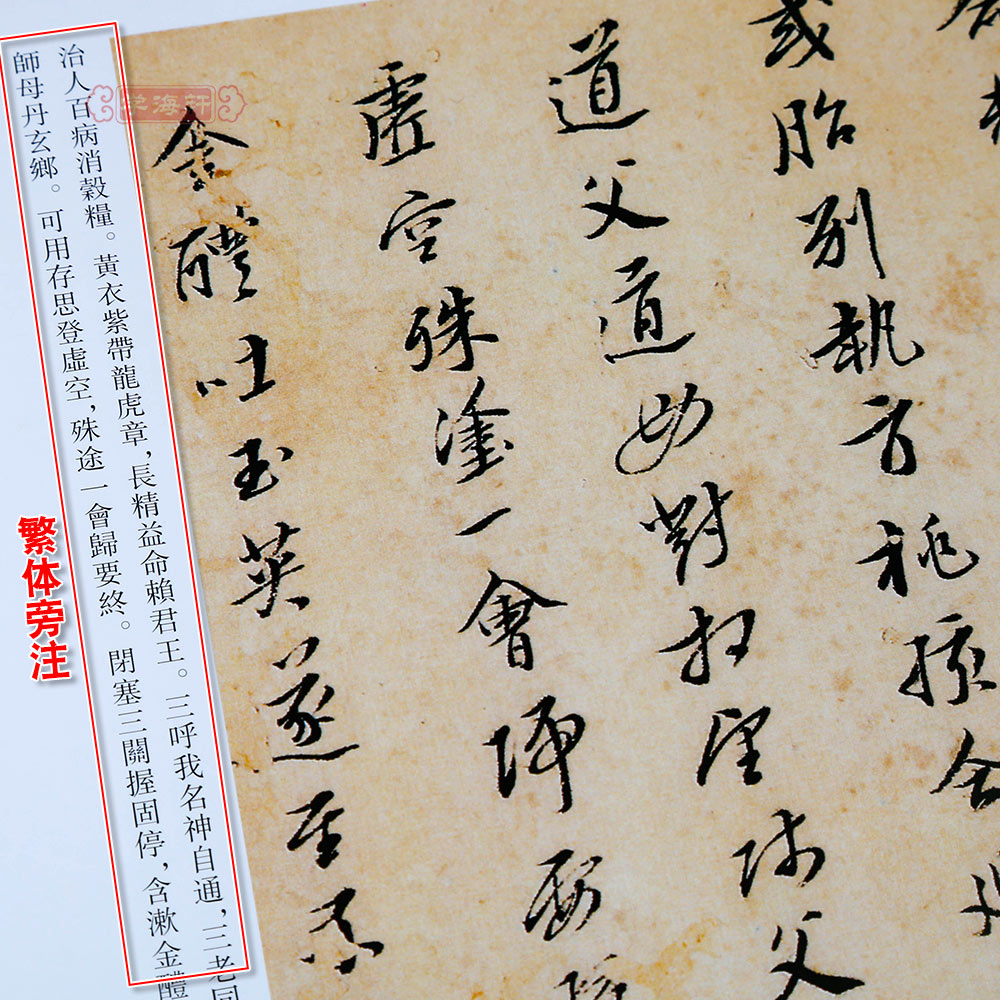 或胎別執方桃孩合
道父道母對相望師父
虛空殊塗一會歸要
金醴吐玉英遂至不
治人百病消穀糧。黃衣紫帶龍虎章，長精益命賴君王。三呼我名神自通，三老同
師母丹玄鄉。可用存思登虛空，殊途一會歸要終。閉塞三關握固停，含漱金醴
繁体旁注
学海軒